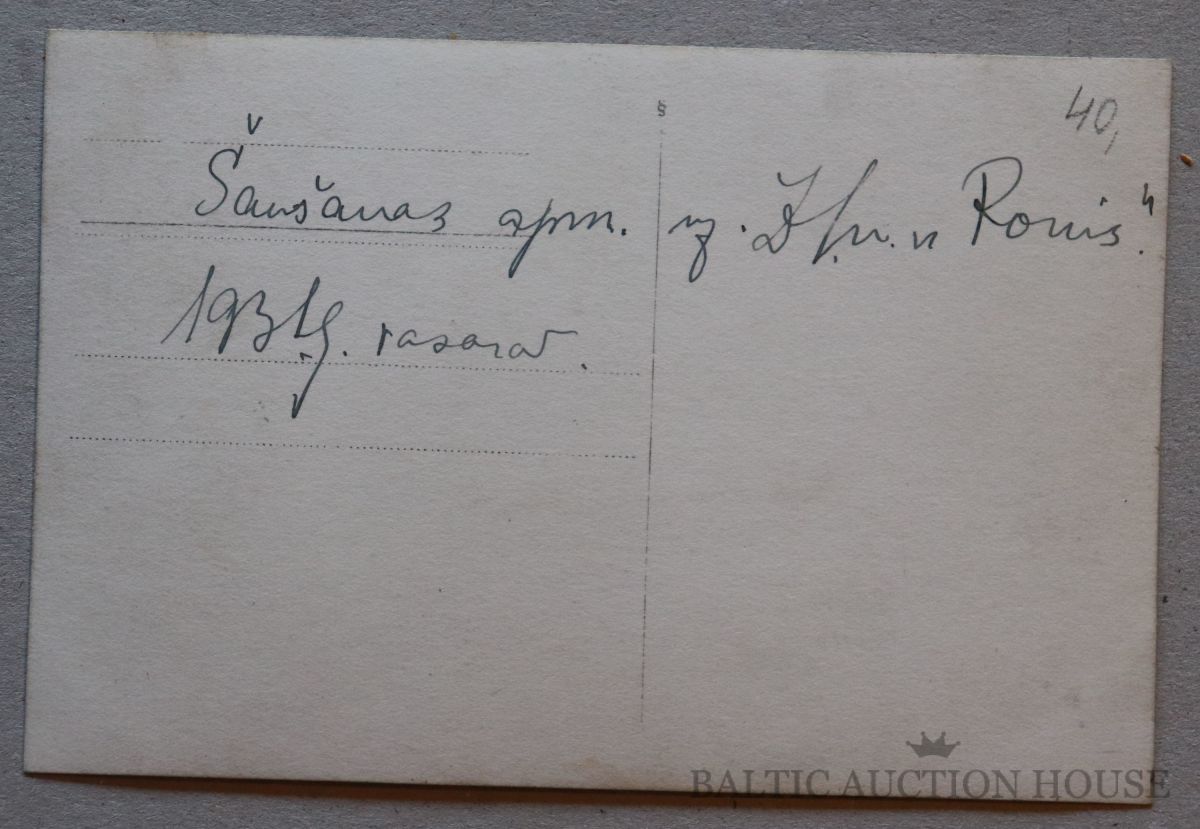 40,
Šaušanas apm. uz. Z/l. „Ronis“.
1931g. vasarā.
BALTIC AUCTION HOUSE